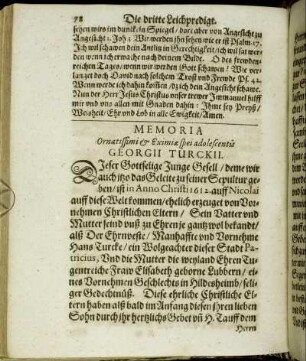 78 Die dritte Leichpredigt.
sehen wirs im dunckeln Spiegel / dort aber von Angesicht zu
Angesicht 1. Joh: 3: Wir werden ihn sehen wie er ist Psalm. 17.
Ich wil schawen dein Antlitz in Gerechtigkeit / ich wil sat wer-
den wenn ich erwache nach deinem Bilde. O des frewden-
reichen Tages / wenn wir werden Gott schawen / Wie ver-
langet doch David nach solchem Trost und Frewde Ps. 42.
Wenn werde ich dahin kommen / daß ich dein Angesicht schawe.
Nun der Herr Jesus Christus unser trewer Immanuel hilff
mir und uns allen mit Gnaden dahin: Ihme sey Preyß /
Weisheit / Ehr und Lob in alle Ewigkeit / Amen.
MEMORIA
Ornatissimi & Eximiæ spei adolescentis
GEORGII TURCKII.
DIeser Gottselige Junge Gesell / deme wir
auch itzo das Geleite zu seiner Sepultur ge-
ben / ist in Anno Christi 1612. auff Nicolai
auff diese Welt kommen / ehelich erzeuget von Vor-
nehmen Christlichen Eltern / Sein Vatter und
Mutter seind euch zu Ehren je gantz wol bekandt /
alß Der Ehrnveste / Manhaffte und Vornehme
Hans Turcke / ein Wolgeachter dieser Stadt Pa-
tricius, Und die Mutter die weyland Ehren Tu-
gentreiche Fraw Elisabeth geborne Lubbern / ei-
nes Vornehmen Geschlechts in Hildesheimb / seli-
ger Gedechtnüß. Diese ehrliche Christliche El-
tern haben alß bald im Anfang diesen ihren lieben
Sohn durch ihr hertzlichs Gebet und H. Tauff dem
Herrn